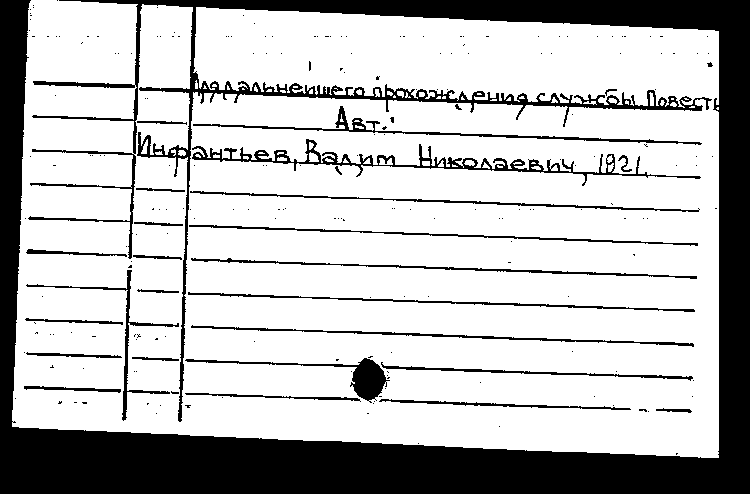 Для дальнейшего прохождения службы. Повесть
Авт.:
Инфантьев, Вадим Николаевич, 1921.